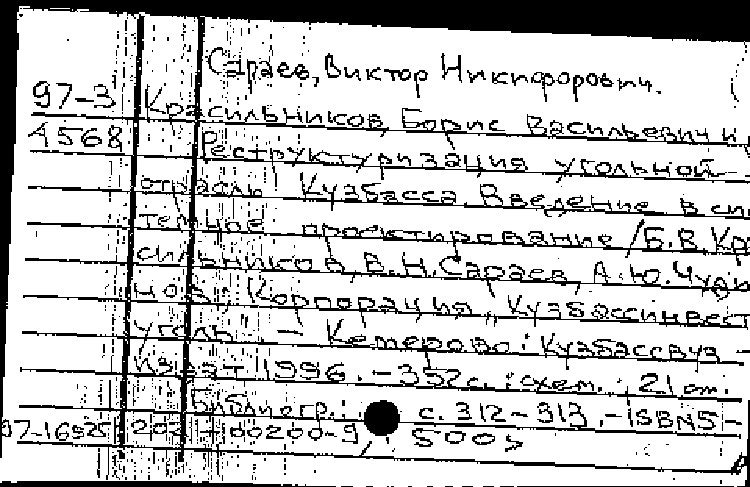 Сараев, Виктор Никифорович.
97-3 Красильников, Борис Васильевич и
4568 Реструктуризация угольной
отрасль Кузбасса. Введение в сис
темное проектирование / Б.В. Кра
сильников, В.Н. Сараев, А.Ю. Чудь
нов; Корпорация "Кузбассинвест
уголь". - Кемерово: Кузбассвуз -
1996. - 352с.: схем.; 21 см.
Библиогр.: с. 312-313. - ISBN 5-
97-16925 202-00200-9 500э